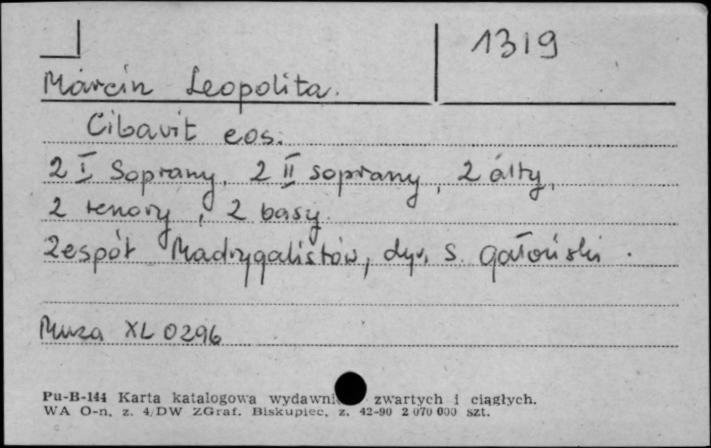 1319
Marcin Leopolita.
Cibavit eos.
2 I Soprany, 2 II soprany, 2 alty,
2 tenory, 2 basy.
Zespół Madrygalistów, dyr. S. Gałoński.
Muza XL 0296
Pu-B-144 Karta katalogowa zwartych i ciągłych.
WA O-n. z. 4/DW ZGraf. Biskupiec, z. 42-90 2 070 000 szt.